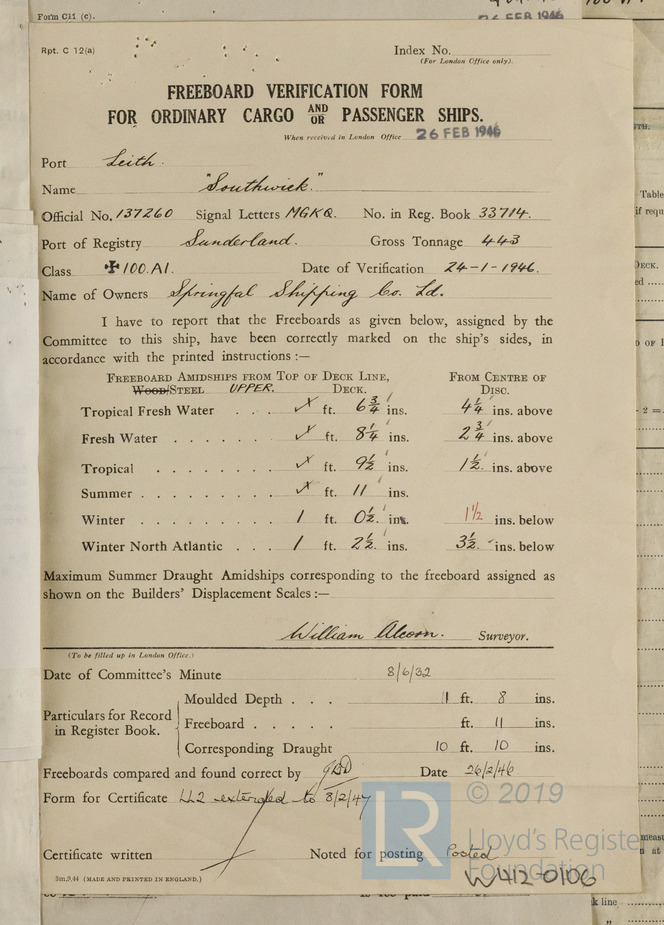 Form C11 (c).
26 FEB 1946
Rpt. C 12(a)
Index No.
(For London Office only).
FREEBOARD VERIFICATION FORM
FOR ORDINARY CARGO AND/OR PASSENGER SHIPS.
When received in London Office 26 FEB 1946
Port Leith.
Name "Southwick."
Official No. 137260 Signal Letters MGKQ. No. in Reg. Book 33714.
Port of Registry Sunderland. Gross Tonnage 443
Class ✠100.A1. Date of Verification 24-1-1946.
Name of Owners Springfal Shipping Co. Ld.
I have to report that the Freeboards as given below, assigned by the
Committee to this ship, have been correctly marked on the ship's sides, in
accordance with the printed instructions :—
FREEBOARD AMIDSHIPS FROM TOP OF DECK LINE, FROM CENTRE OF
WOOD/STEEL UPPER. DECK. DISC.
Tropical Fresh Water . . . ✓ ft. 6 3/4 ins. 4 1/4 ins. above
Fresh Water . . . . . . . ✓ ft. 8 1/4 ins. 2 3/4 ins. above
Tropical . . . . . . . . ✓ ft. 9 1/2 ins. 1 1/2 ins. above
Summer . . . . . . . . . ✓ ft. 11 ins.
Winter . . . . . . . . . 1 ft. 0 1/2 ins. 1 1/2 ins. below
Winter North Atlantic . . . 1 ft. 2 1/2 ins. 3 1/2 ins. below
Maximum Summer Draught Amidships corresponding to the freeboard assigned as
shown on the Builders' Displacement Scales :—
William Alcorn. Surveyor.
(To be filled up in London Office.)
Date of Committee's Minute 8/6/32
Particulars for Record in Register Book.
Moulded Depth . . . 11 ft. 8 ins.
Freeboard . . . . . ft. 11 ins.
Corresponding Draught 10 ft. 10 ins.
Freeboards compared and found correct by Date 26/2/46
Form for Certificate LL2 extended to 8/2/47
© 2019
LR
Lloyd's Register
Foundation
Certificate written Noted for posting Posted
W412-0106
5m,9.44 (MADE AND PRINTED IN ENGLAND.)